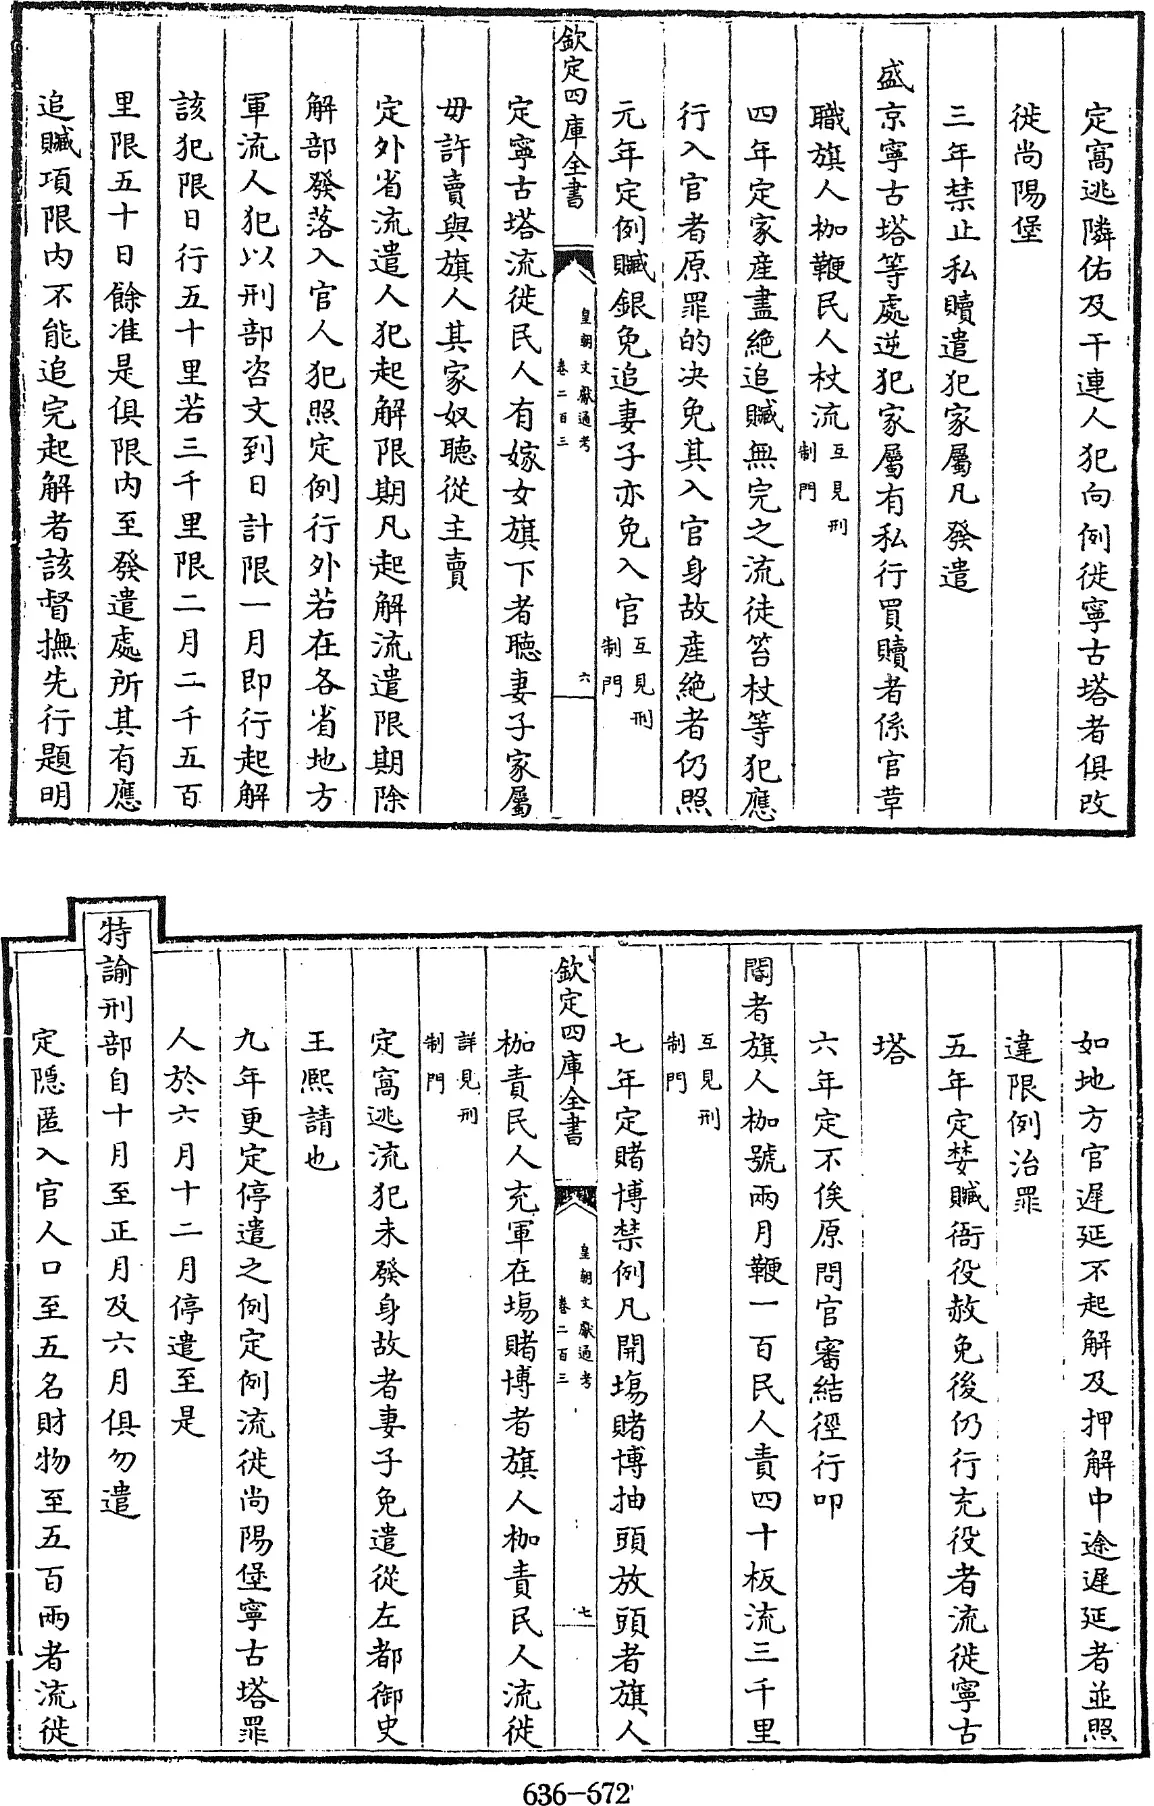 定窩逃隣佑及干連人犯向例徙寧古塔者俱改
徙尚陽堡
三年禁止私贖遣犯家屬凡發遣
盛京寧古塔等處逆犯家屬有私行買贖者係官革
職旗人枷鞭民人杖流互見刑制門
四年定家產盡絶追贓無完之流徒笞杖等犯應
行入官者原罪的决免其入官身故產絶者仍照
元年定例贓銀免追妻子亦免入官互見刑制門
欽定四庫全書
皇朝文獻通考
卷二百三
六
定寧古塔流徙民人有嫁女旗下者聽妻子家屬
毋許賣與旗人其家奴聽從主賣
定外省流遣人犯起解限期凡起解流遣限期除
解部發落入官人犯照定例行外若在各省地方
軍流人犯以刑部咨文到日計限一月即行起解
該犯限日行五十里若三千里限二月二千五百
里限五十日餘准是俱限内至發遣處所其有應
追贓項限内不能追完起解者該督撫先行題明
如地方官遲延不起解及押解中途遲延者並照
違限例治罪
五年定婪贓衙役赦免後仍行充役者流徙寧古
塔
六年定不俟原問官審結徑行叩
閽者旗人枷號兩月鞭一百民人責四十板流三千里
互見刑制門
七年定賭博禁例凡開塲賭博抽頭放頭者旗人
欽定四庫全書
皇朝文獻通考
卷二百三
七
枷責民人充軍在塲賭博者旗人枷責民人流徙
詳見刑制門
定窩逃流犯未發身故者妻子免遣從左都御史
王熙請也
九年更定停遣之例定例流徙尚陽堡寧古塔罪
人於六月十二月停遣至是
特諭刑部自十月至正月及六月俱勿遣
定隱匿入官人口至五名財物至五百兩者流徙
636-672